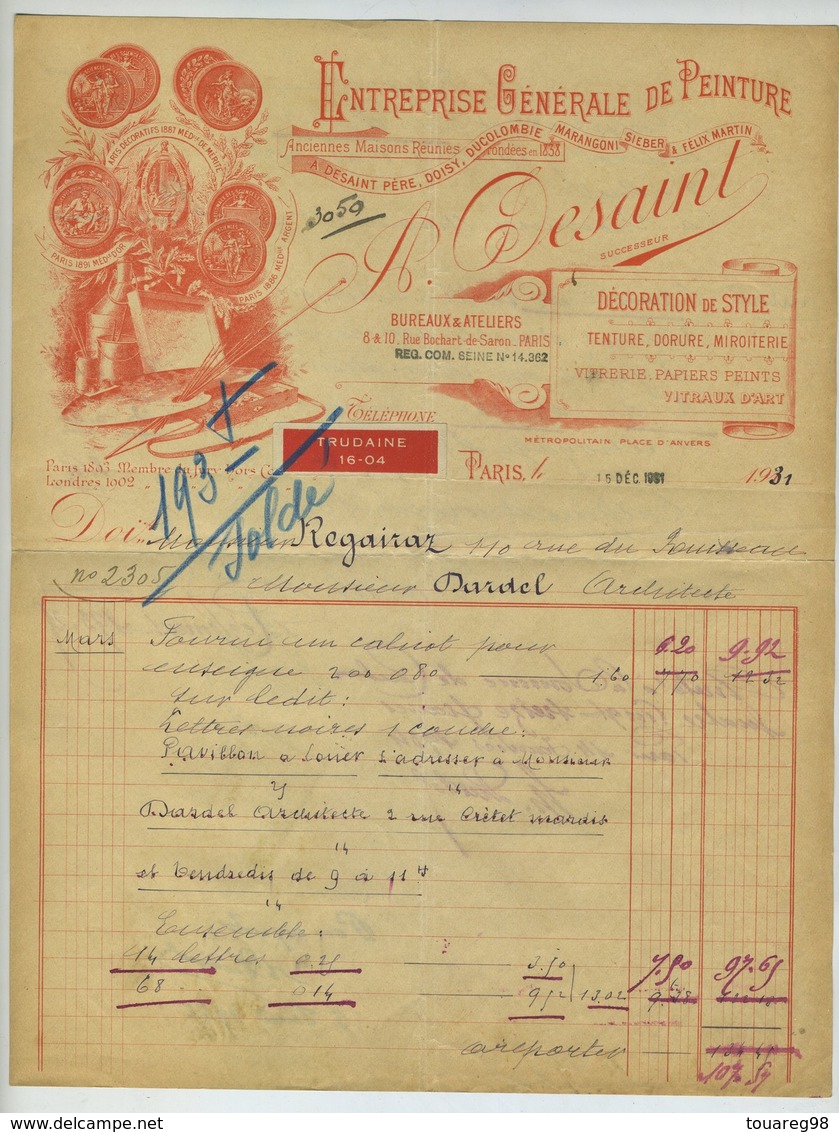 ENTREPRISE GÉNÉRALE DE PEINTURE
Anciennes Maisons Réunies fondées en 1838
A. DESAINT PÈRE, DOISY, DUCOLOMBIE MARANGONI SIEBER & FÉLIX MARTIN
A. Desaint
SUCCESSEUR
ARTS DÉCORATIFS 1887 MÉDlle DE MÉRITE
PARIS 1891 MÉDlle D'OR
PARIS 1886 MÉDlle ARGENT
3059
BUREAUX & ATELIERS
8 & 10, Rue Bochart-de-Saron._PARIS
REG. COM. SEINE No 14.362
DÉCORATION DE STYLE
TENTURE, DORURE, MIROITERIE
VITRERIE, PAPIERS PEINTS
VITRAUX D'ART
TÉLÉPHONE
TRUDAINE
16-04
MÉTROPOLITAIN PLACE D'ANVERS
Paris 1893 Membre du Jury Hors Co
Londres 1902 " " "
PARIS, le 15 DÉC. 1931 1931
193
Solde
Doit Monsieur Regairaz 110 rue du Ruisseau
no 2305
Monsieur Dardel Architecte
Mars Fourni un calicot pour 6.20 9.92
enseigne 200 080 1,60 7,70 12 32
sur ledit:
Lettres noires 1 couche:
Pavillon a Louer S'adresser a Monsieur
Dardel Architecte 2 rue Crétet mardis
et Vendredis de 9 à 11 H
14
Ensemble:
14 lettres 0.25 3.50 7.50 97.65
68 ... 014 9,52 13.02
a reporter
107.57
touareg98